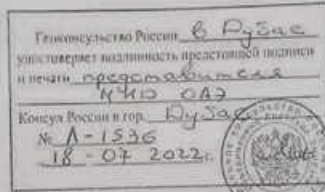 Генконсульство России в Дубае
удостоверяет подлинность предстоящей подписи
и печати представителя
МИД ОАЭ
Консул России в гор. Дубае
№ Л-1536
18-07 2022г.